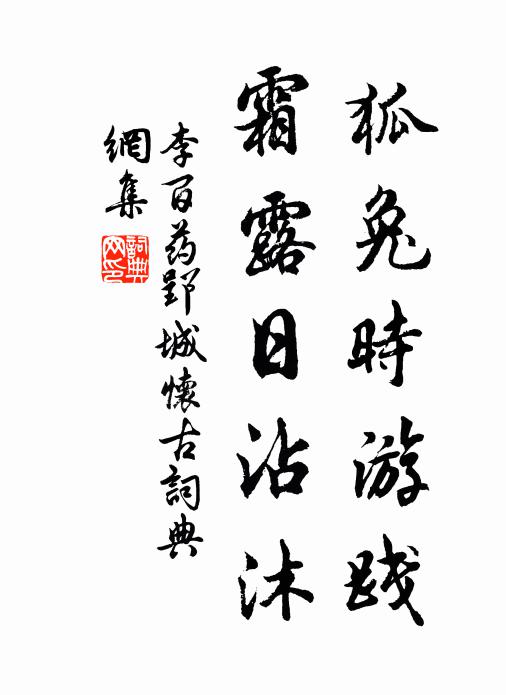 狐兔時游踐
霜露日沾沐
李百药郢城懷古詞典
網集
詞典
网印